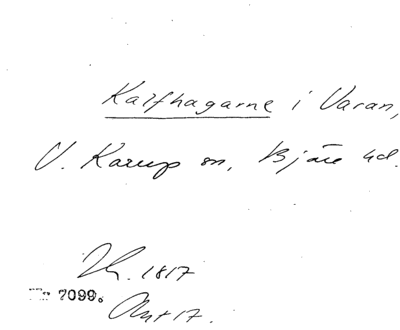 Kalfhagarne i Varan,
V. Karup sn, Bjäre hd.
1817
7099.
Akt 17.